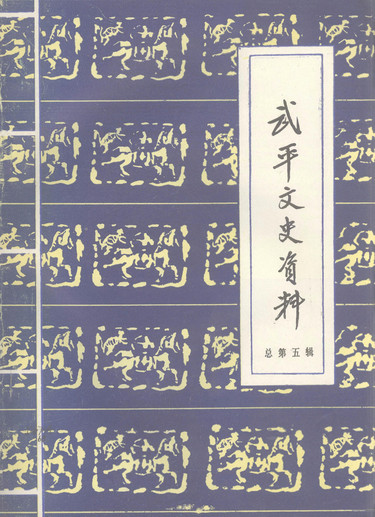 武平文史资料
总第五辑